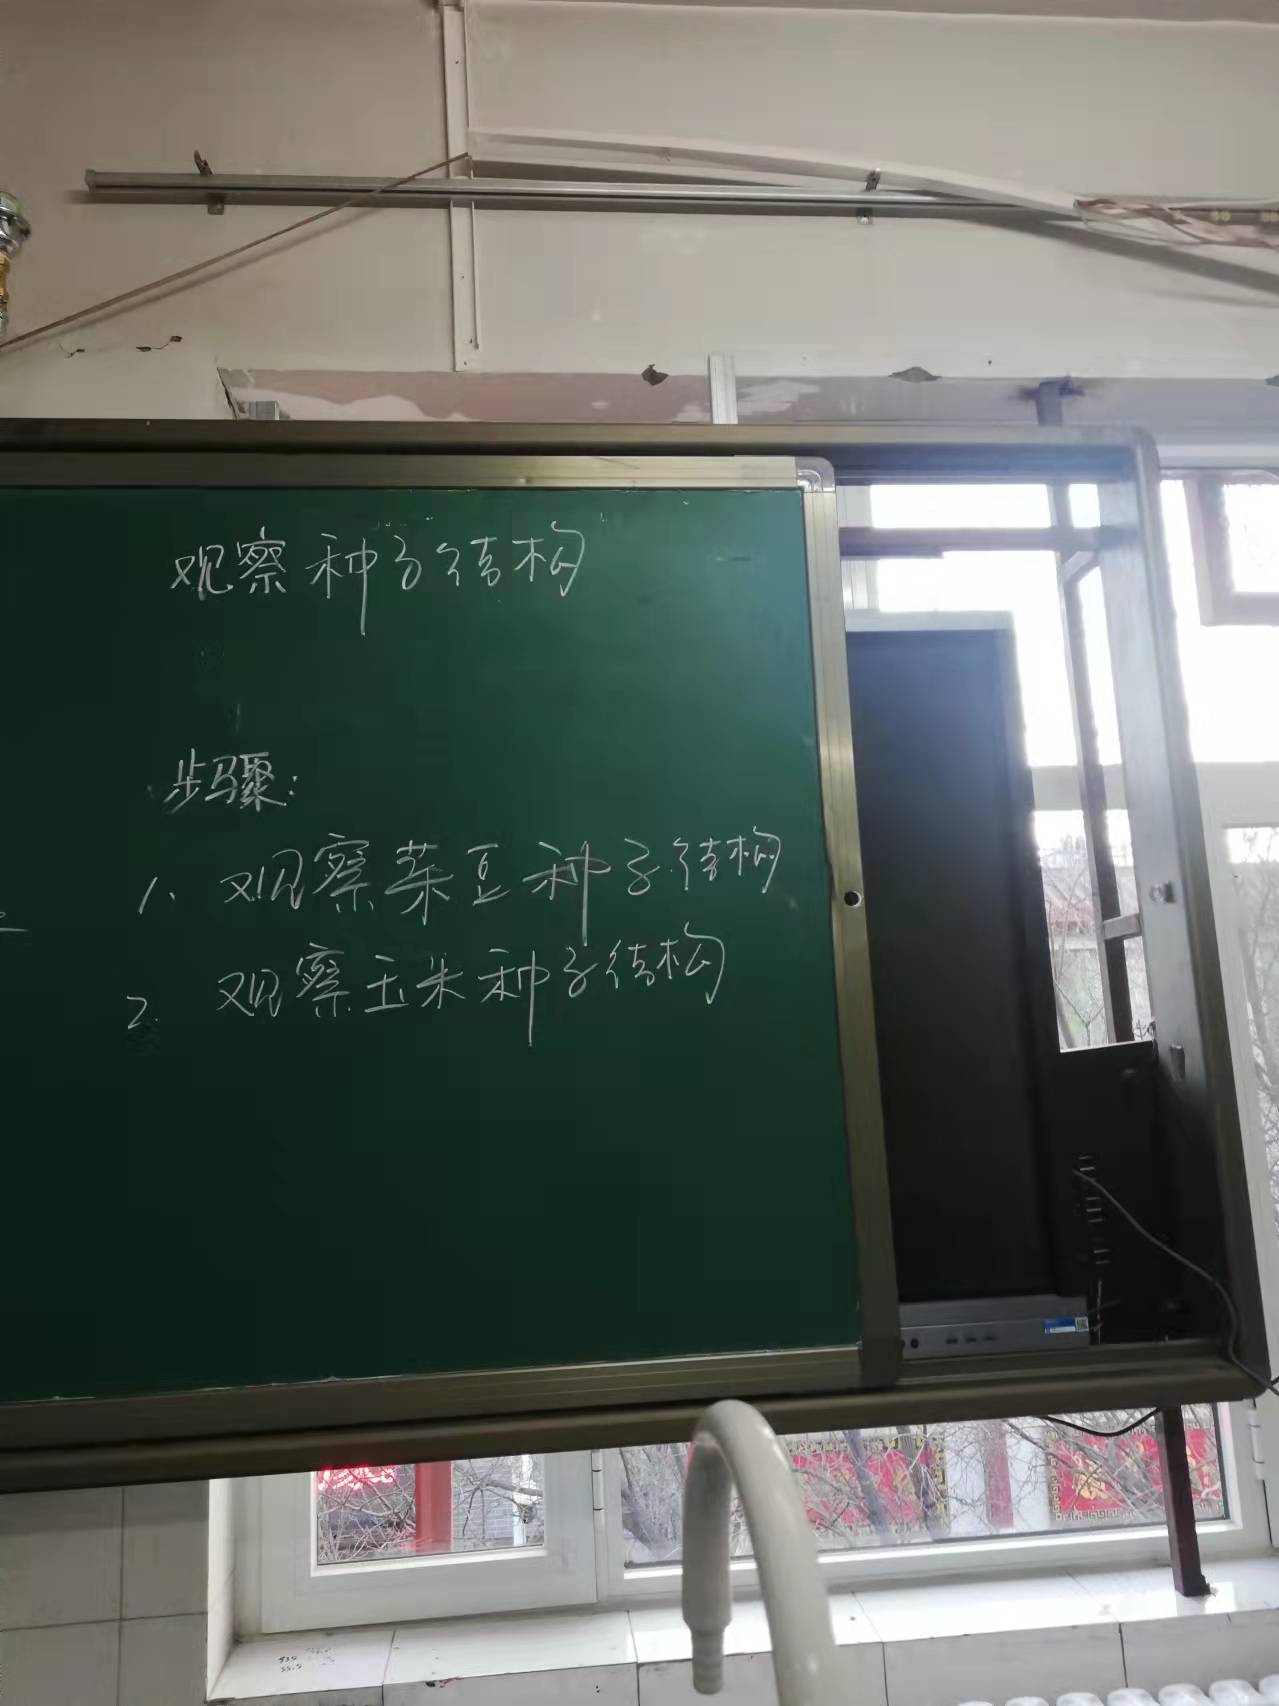 观察种子结构
步骤:
1. 观察菜豆种子结构
2. 观察玉米种子结构